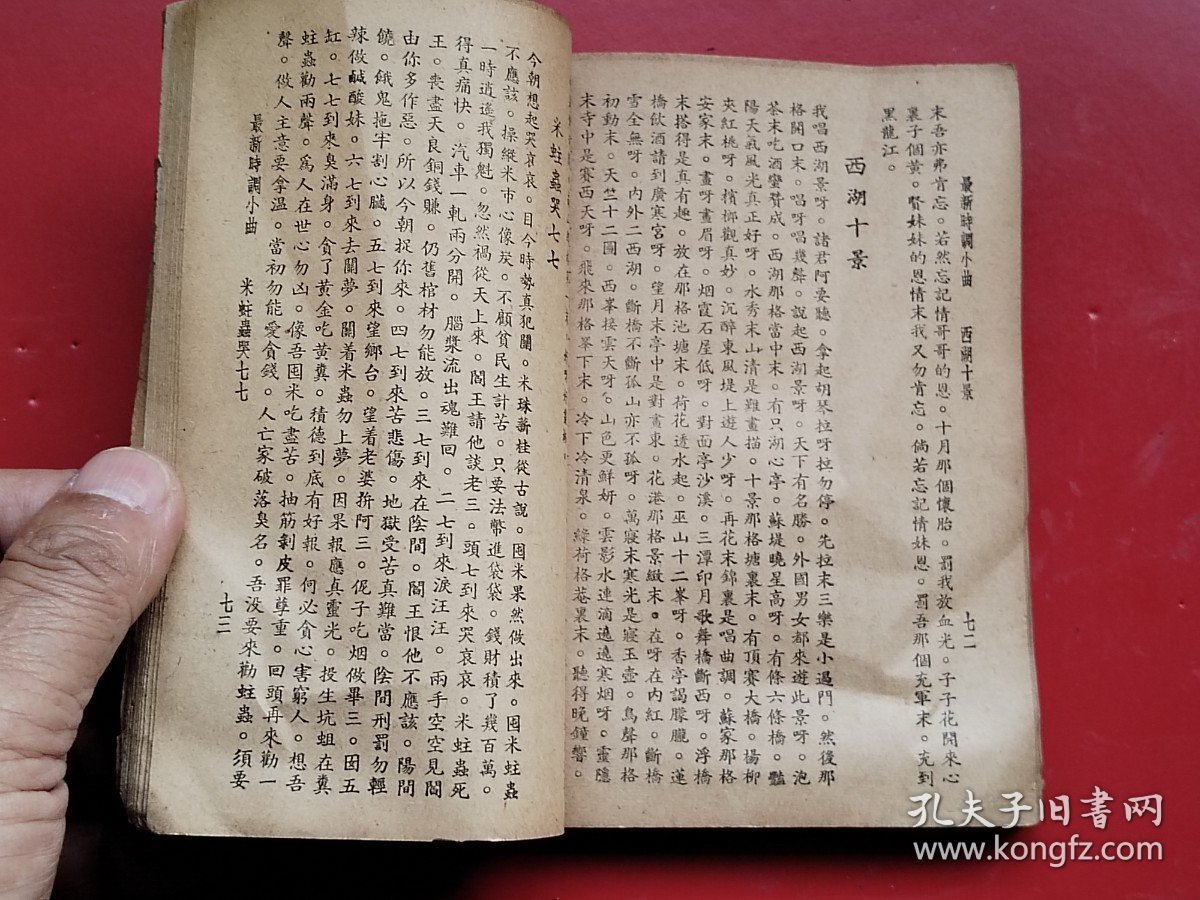 最新時調小曲　西湖十景　七二
末吾亦弗肯忘。若然忘記情哥哥的恩。十月那個懷胎。罰我放血光。子子花開來心
裏子個黃。賢妹妹的恩情末我又勿肯忘。倘若忘記情妹恩。罰吾那個充軍末。充到
黑龍江。
西湖十景
我唱西湖景呀。諸君阿要聽。拿起胡琴拉呀拉勿停。先拉末三樂是小過門。然後那
格開口末。唱呀唱幾聲。說起西湖景呀。天下有名勝。外國男女都來遊此景呀。泡
茶末吃酒蠻贊成。西湖那格當中末。有只湖心亭。蘇堤曉星高呀。有條六條橋。豔
陽天氣風光真正好呀。水秀末山清是難畫描。十景那格塘裏末。有頂賽大橋。楊柳
夾紅桃呀。檳榔觀真妙。沉醉東風堤上遊人少呀。再花末錦裏是唱曲調。蘇家那格
安家末。畫呀畫眉呀。烟霞石屋低呀。對面亭沙溪。三潭印月歌舞橋斷西呀。浮橋
末搭得是真有趣。放在那格池塘末。荷花透水起。巫山十二峯呀。香亭謁朦朧。蓮
橋飲酒請到廣寒宮呀。望月末亭中是對畫東。花港那格景緻末。在呀在內紅。斷橋
雪全無呀。內外二西湖。斷橋不斷孤山亦不孤呀。萬寢末寒光是寢玉壺。鳥聲那格
初動末。天竺十二圖。西峯接雲天呀。山色更鮮妍。雲影水連滴遶遶寒烟呀。靈隱
末寺中是賽西天呀。飛來那格峯下末。冷下冷清泉。綠荷格菴裏末。聽得晚鐘響。
米蛀蟲哭七七
今朝想起哭哀哀。目今時勢真犯關。米珠薪桂從古說。囤米果然做出來。囤米蛀蟲
不應該。操縱米市心像炭。不顧貧民生計苦。只要法幣進袋袋。錢財積了幾百萬。
一時逍遙我獨魁。忽然禍從天上來。閻王請他談老三。頭七到來哭哀哀。米蛀蟲死
得真痛快。汽車一軋兩分開。腦漿流出魂難回。二七到來淚汪汪。兩手空空見閻
王。喪盡天良銅錢賺。仍舊棺材勿能放。三七到來在陰間。閻王恨他不應該。陽間
由你多作惡。所以今朝捉你來。四七到來苦悲傷。地獄受苦真難當。陰間刑罰勿輕
饒。餓鬼拖牢割心臟。五七到來望鄉台。望着老婆拚阿三。伲子吃烟做畢三。囡五
辣做鹹酸妹。六七到來去關夢。關着米蟲勿上夢。因果報應真靈光。投生坑蛆在糞
缸。七七到來臭滿身。貪了黃金吃黃糞。積德到底有好報。何必貪心害窮人。想吾
蛀蟲勸兩聲。爲人在世心勿凶。像吾囤米吃盡苦。抽筋剝皮罪孽重。回頭再來勸一
聲。做人主意要拿溫。當初勿能愛貪錢。人亡家破落臭名。吾没要來勸蛀蟲。須要
最新時調小曲　米蛀蟲哭七七　七三
孔夫子旧书网
www.kongfz.com